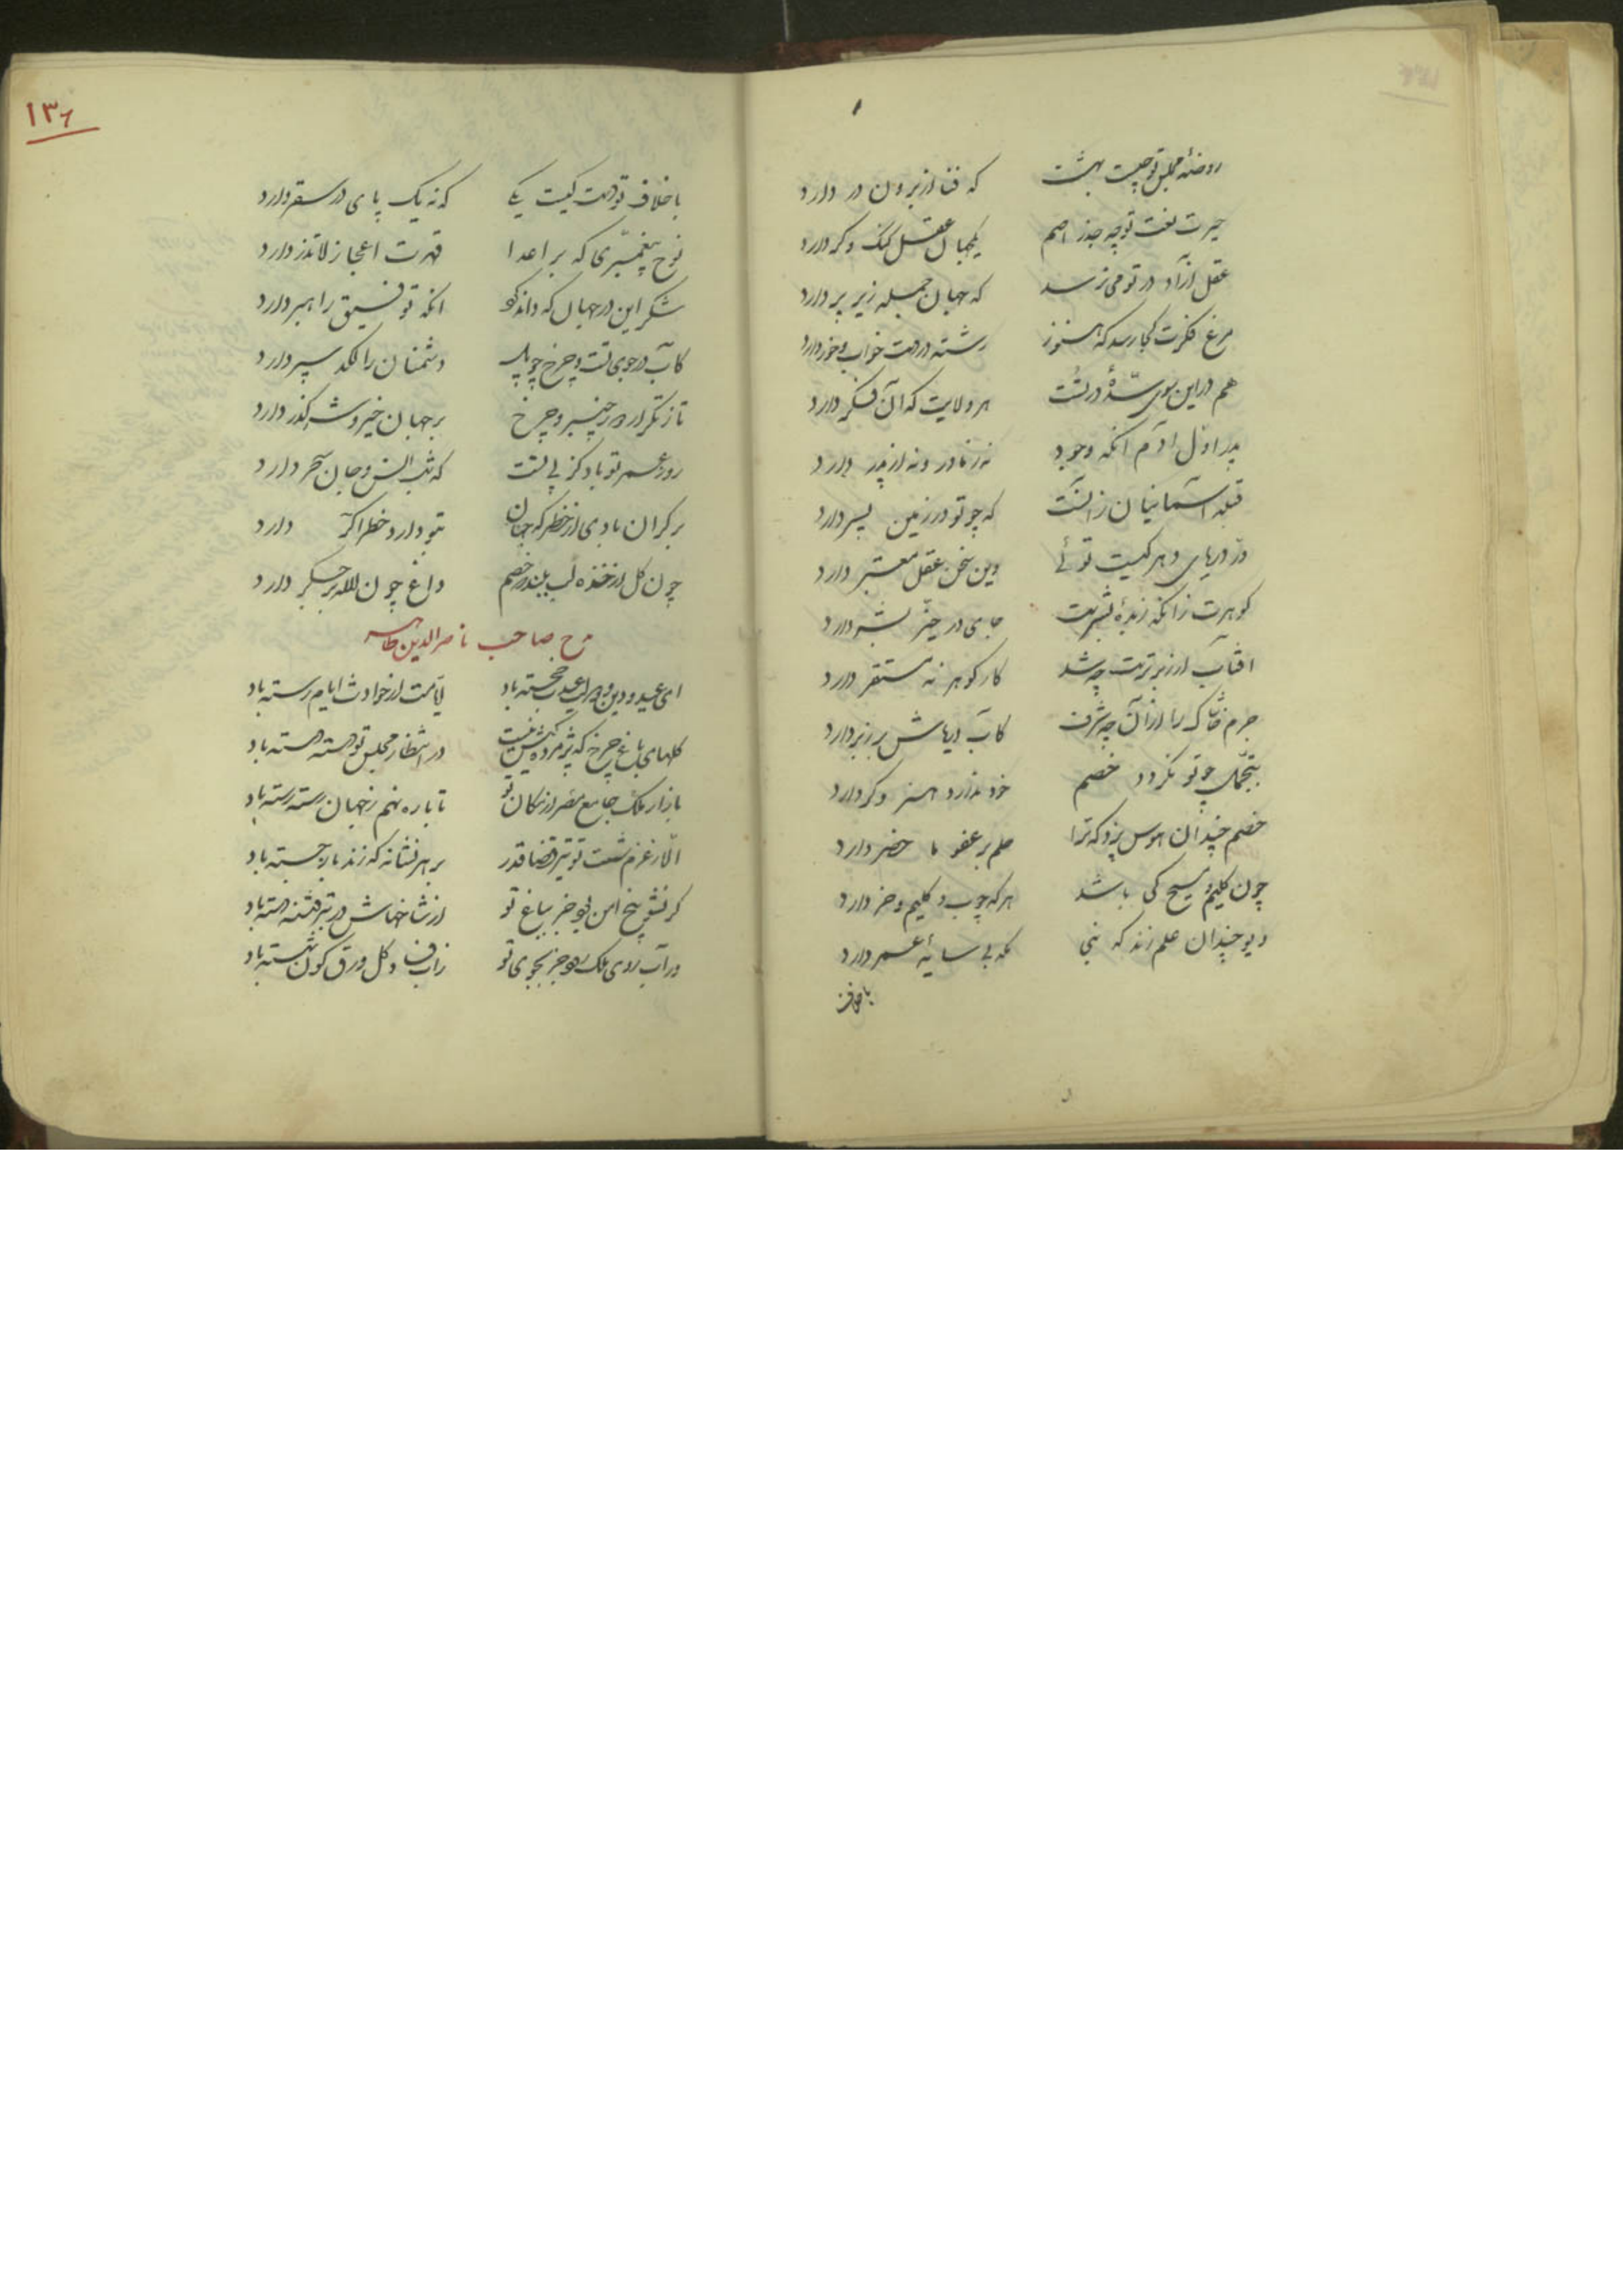 روضهٔ مجلس تو چیست بهشت که فنا از برون در دارد
حیرت نعت تو چو جذر اصم یکجهان عقل گنگ و کر دارد
عقل ازآن در تو می‌نرسد که جهان جمله زیر پر دارد
مرغ فکرت کجا رسد که هنوز رشته در دست خواب و خور دارد
هم در این سوی سدّهٔ در تست هر ولایت که آن فکر دارد
پدر اول آدم آنکه وجود نه ز مادر و نه از پدر دارد
قبله آسمانیان زآنست که چو تو در زمین پسر دارد
درّ دریای دهر کیست توئی وین سخن عقل معتبر دارد
گوهرت زانکه زبدهٔ بشریت جای در حیّز بشر دارد
آفتاب از زبر تربت چه شد کار گوهر نه مستقر دارد
جرم خاشاک را از آن چه شرف کآب دریاش بر زبر دارد
بتجمل چو تو نگردد خصم خود ندارد هنر وگر دارد
خصم چندان هوس پزد که ترا حلم بر عفو ما حضر دارد
چون کلیم و مسیح کی باشد هر که چوب و کلیم و خر دارد
دیو چندان علم زند که نبی مکه بی سایهٔ عمر دارد
با خلاف
۱۳۶
با خلاف تو دست کیست یکی که نه یک پای در سقر دارد
نوح پیغمبری که بر اعدا قهرت اعجاز لاتذر دارد
شکر این در جهان که داند کو آنکه توفیق راهبر دارد
کآب در جوی تست و چرخ چو پل دشمنان را لگد سپر دارد
تا ز تکرار در چنبر و چرخ بر جهان خیر و شر گذر دارد
روز عمر تو باد کز پی تست که شب انس و جان سحر دارد
بر کران بادی از خطر که جهان بتو دارد خطر اگر دارد
چون گل از خنده لب ببندد خصم داغ چون لاله بر جگر دارد
مدح صاحب ناصرالدین طاهر
ای عید و دین و دولت عیدت خجسته باد ایامت از حوادث ایام رسته باد
گلهای باغ چرخ که پژمردنیش نیست در انتظار مجلس تو دسته دسته باد
بازار ملک جامع مصر از مکان تو تا باره نهم ز جهان رسته رسته باد
الا از عزم شست تو تیر قضا قدر بر هر نشانه که زند باز جسته باد
گر نشو بیخ امن بود جز بباغ تو از شاخهاش در تبر فتنه دسته باد
ور آب روی ملک رود جز بجوی تو زآب فنا و گل ورق کون شسته باد